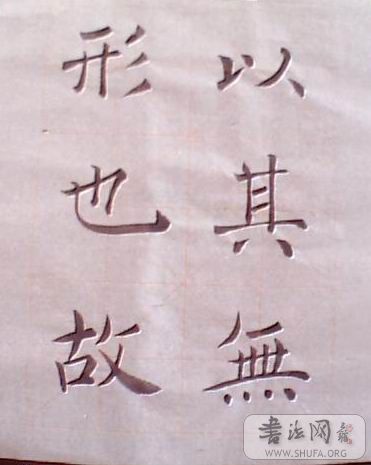 以其無
形也故
書法网
WWW.SHUFA.ORG